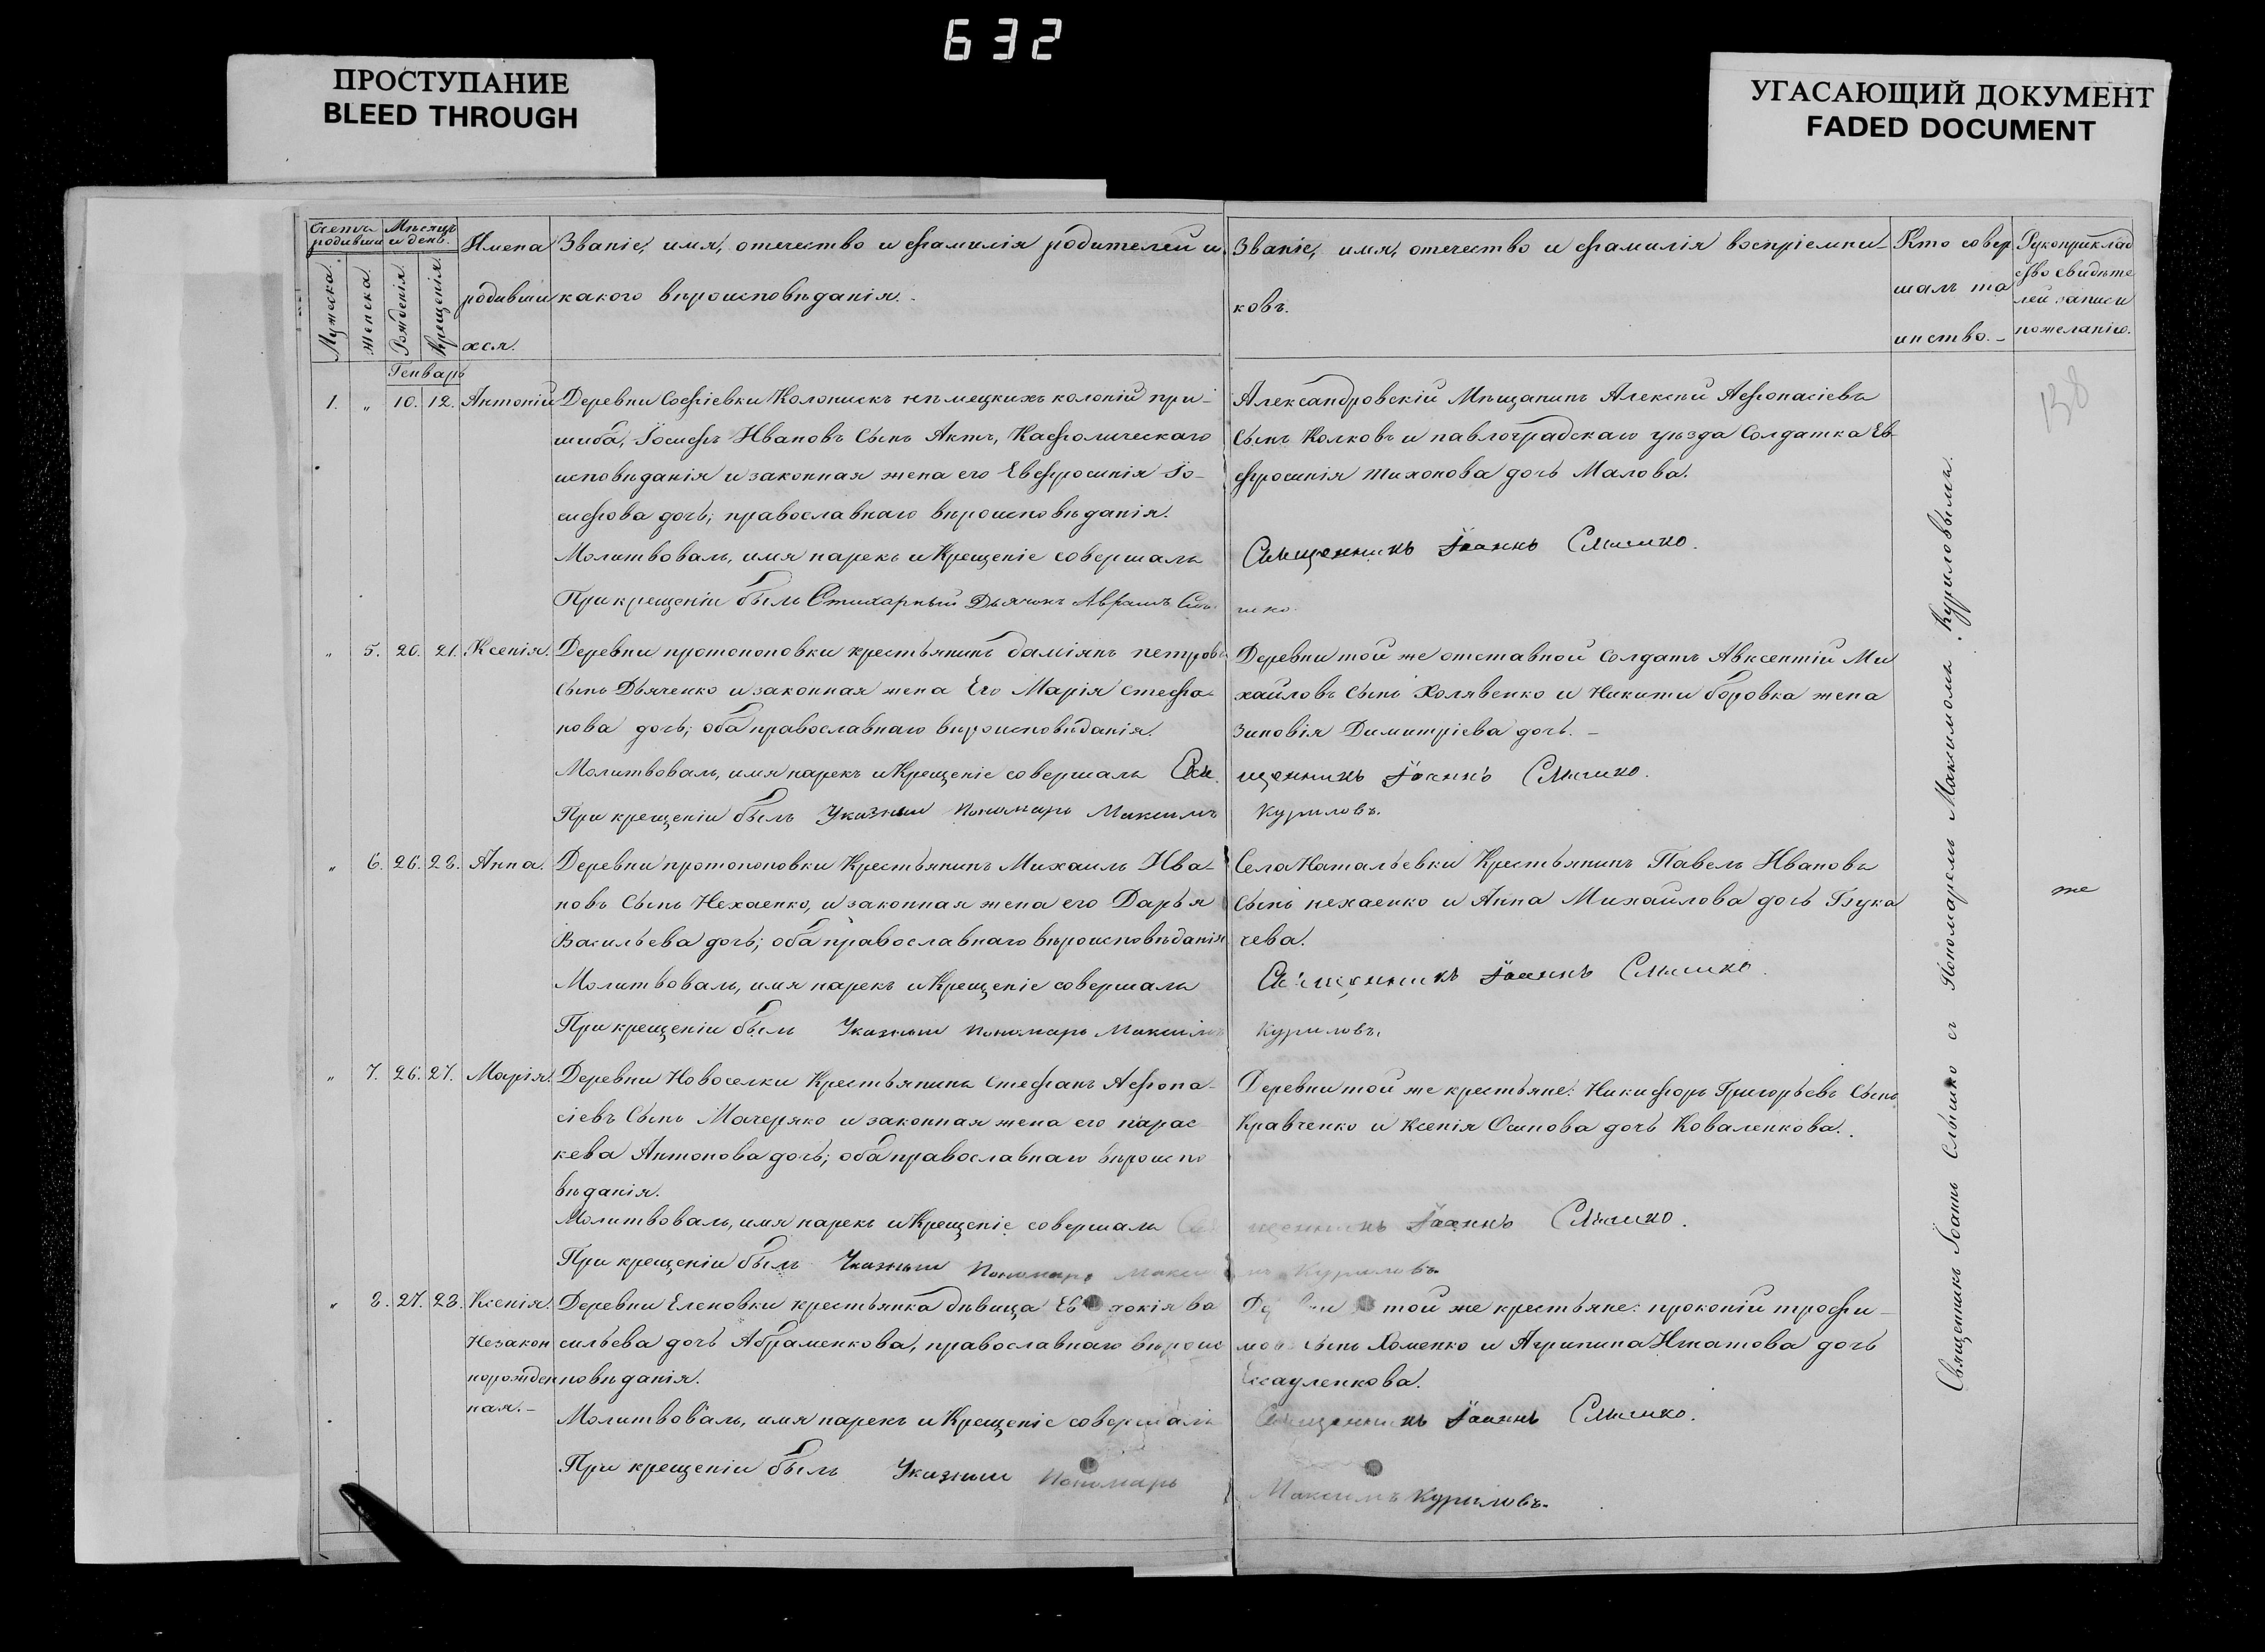 632
ПРОСТУПАНИЕ
BLEED THROUGH
УГАСАЮЩИЙ ДОКУМЕНТ
FADED DOCUMENT
Счетъ родивши
Мѣсяцъ и день.
Мужеска.
Женска.
Рожденія.
Крещенія.
Имена
родивши
хся.
Званіе, имя, отечество и фамилія родителей и
какого вѣроисповѣданія.
Званіе, имя, отечество и фамилія воспріемни-
ковъ.
Кто совер
шалъ та
инство.
Рукоприклад
ство свидѣте
лей записи
по желанію.
Генварь
138
1. " 10. 12. Антоній
Деревни Софіевки Колонискъ нѣмецкихъ колоній при-
шиба, Іосифъ Ивановъ Сынъ Актъ, Кафолическаго
исповѣданія и законная жена его Евфросинія Іо-
сифова дочь; православнаго вѣроисповѣданія.
Молитвовалъ, имя нарекъ и Крещеніе совершалъ
При крещеніи былъ Стихарный Дьячокъ Авраамъ Слы
Александровскій Мѣщанинъ Алексѣй Афонасіевъ
Сынъ Колковъ и павлоградскаго уѣзда Солдатка Ев-
фросинія Тихонова дочь Малова.
Священникъ Іоаннъ Слышко.
шко.
" 5. 20. 21. Ксенія.
Деревни протопоповки крестьянинъ даміянъ петровъ
Сынъ Дьяченко и законная жена Его Марія стефа-
нова дочь; оба православнаго вѣроисповѣданія.
Молитвовалъ, имя нарекъ и Крещеніе совершалъ Свя
При крещеніи былъ Указный пономарь Максимъ
Деревни той же отставной Солдатъ Авксентій Ми
хайловъ Сынъ Холявенко и Никиты боровка жена
Зиновія Димитріева дочь. -
щенникъ Іоаннъ Слышко.
Куриловъ.
" 6. 26. 28. Анна.
Деревни протопоповки Крестьянинъ Михаилъ Ива-
новъ Сынъ Нехаенко, и законная жена его Дарья
Васильева дочь; оба православнаго вѣроисповѣданія
Молитвовалъ, имя нарекъ и Крещеніе совершалъ
При крещеніи былъ Указный пономарь Максимъ
Села Натальевки Крестьянинъ Павелъ Ивановъ
Сынъ нехаенко и Анна Михайлова дочь Глука
чева.
Священникъ Іоаннъ Слышко.
Куриловъ.
же
" 7. 26. 27. Марія.
Деревни Новоселки Крестьянинъ стефанъ Афона-
сіевъ Сынъ Мачеряко и законная жена его парас-
кева Антонова дочь; оба православнаго вѣроиспо
вѣданія.
Молитвовалъ, имя нарекъ и Крещеніе совершалъ Свя
При крещеніи былъ Указный пономарь Макси
Деревни той же крестьяне: Никифоръ Григорьевъ Сынъ
Кравченко и Ксенія Осипова дочь Коваленкова.
щенникъ Іоаннъ Слышко.
мъ Куриловъ.
" 8. 27. 28. Ксенія.
Незакон
норожден
ная.-
Деревни Еленовки крестьянка дѣвица Евдокія ва
сильева дочь Абраменкова, православнаго вѣроис
повѣданія.
Молитвовалъ, имя нарекъ и Крещеніе совершалъ
При крещеніи былъ Указный пономарь
Деревни той же крестьяне: прокопій трофи-
мовъ сынъ Хоменко и Агрипина Игнатова дочь
Есауленкова.
Священникъ Іоаннъ Слышко.
Максимъ Куриловъ.
Священникъ Іоаннъ Слышко съ Пономаремъ Максимомъ Куриловымъ.